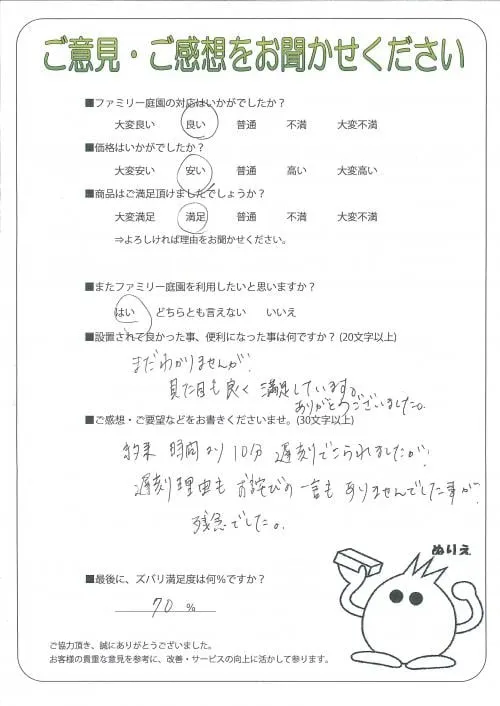 ご意見・ご感想をお聞かせください
■ファミリー庭園の対応はいかがでしたか？
大変良い 良い 普通 不満 大変不満
■価格はいかがでしたか？
大変安い 安い 普通 高い 大変高い
■商品はご満足頂けましたでしょうか？
大変満足 満足 普通 不満 大変不満
⇒よろしければ理由をお聞かせください。
■またファミリー庭園を利用したいと思いますか？
はい どちらとも言えない いいえ
■設置されて良かった事、便利になった事は何ですか？(20文字以上)
まだわかりませんが、
見た目も良く 満足しています。
ありがとうございました。
■ご感想・ご要望などをお書きくださいませ。(30文字以上)
約束 時間より10分 遅刻でこられましたが、
遅刻理由も お詫びの一言も ありませんでした事が、
残念でした。
ぬりえ
■最後に、ズバリ満足度は何％ですか？
70 %
ご協力頂き、誠にありがとうございました。
お客様の貴重な意見を参考に、改善・サービスの向上に活かして参ります。